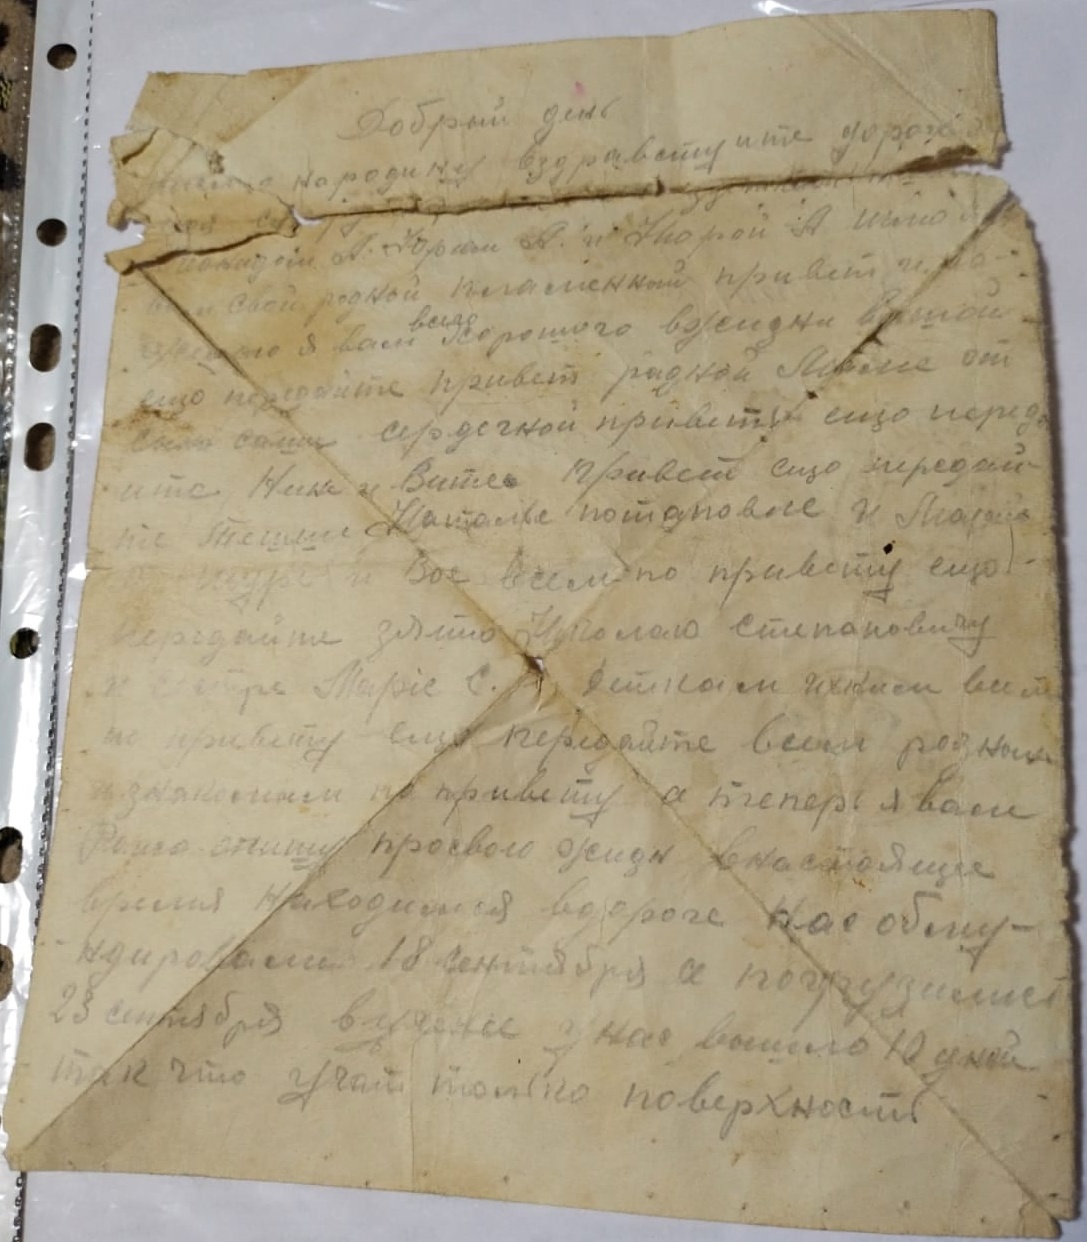 Добрый день
народину вздравствуите дорога
А. Юрам А. и Юрой А
свой родной пламенный привет и
я вам всего хорошого вжизни вашой
ещо передайте привет радной Маме от
сына саши сердечной привет ещо переда
ите Нин и Вите привет ещо передай-
те теще Наталье потаповне и
и Зое всем по привету ещо
передайте зятю Николаю степановичу
и сестре Маріе С. деткам ихним всем
по привету ещо передайте всем родным
изнакомим по привету а теперь я вам
опишу просвою жизн внастоящее
время находимся вдороге нас обму-
ндировали 18 сентября а погрузились
23 сентября вучение у нас вышло 10 дней
так что учат толко поверхность